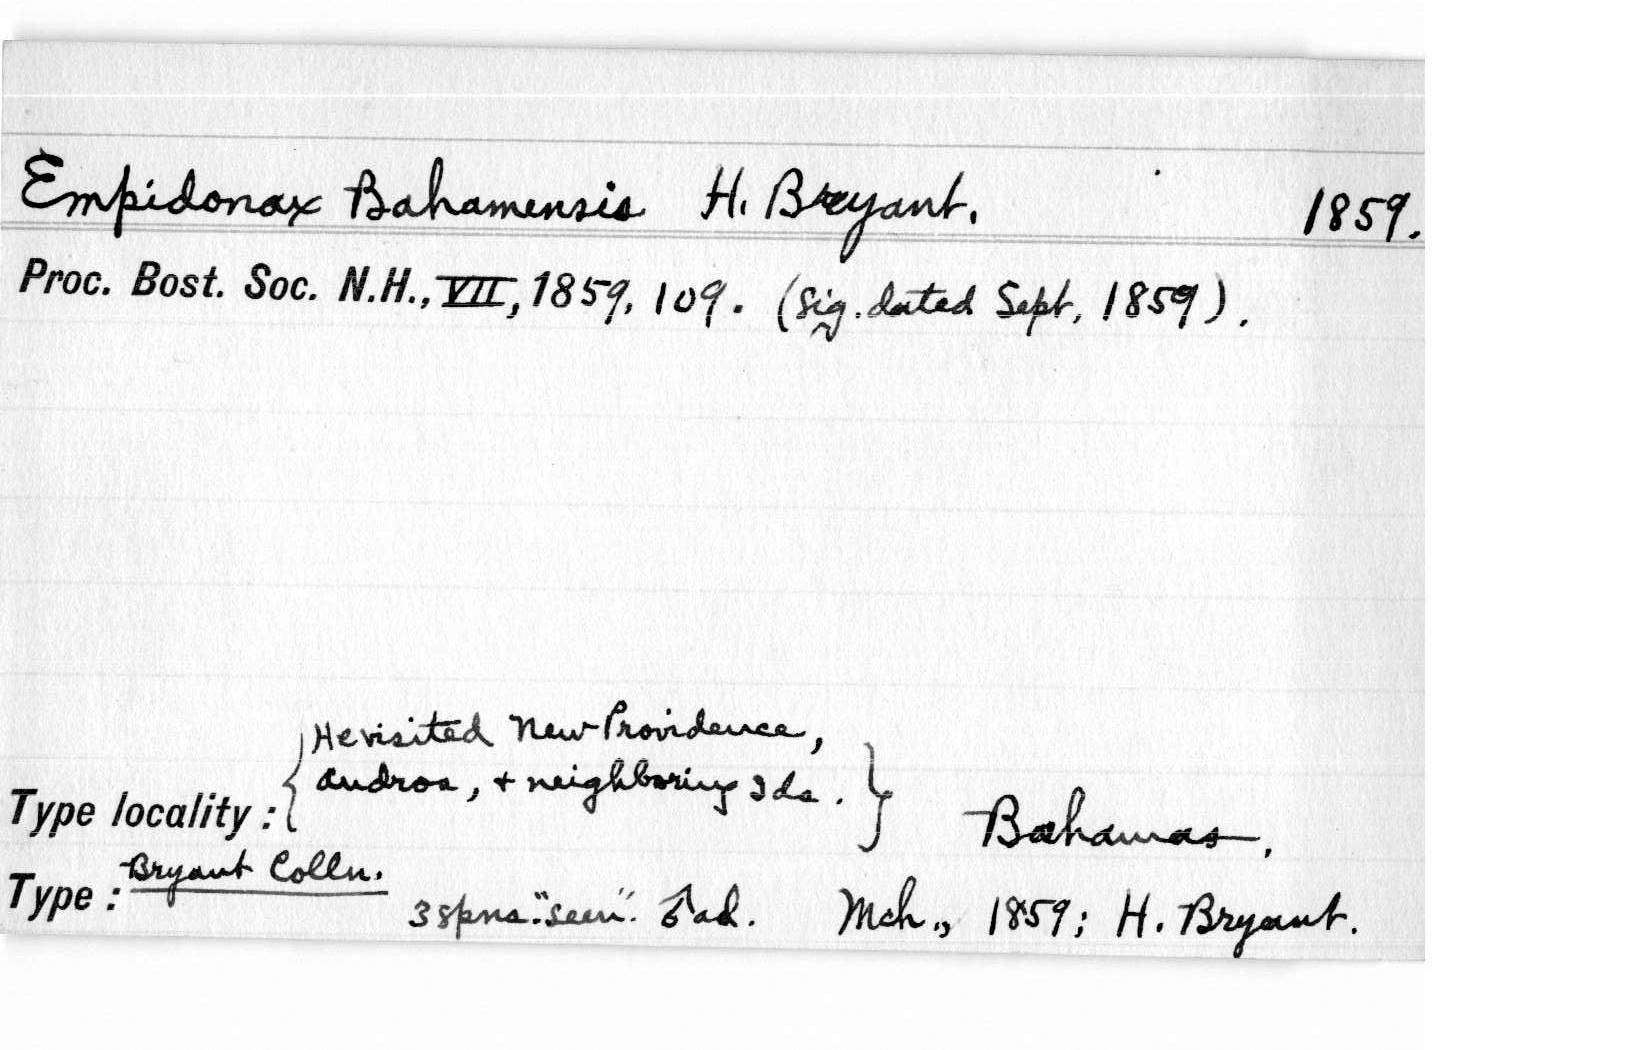 Empidonax Bahamensis H. Bryant. 1859.
Proc. Bost. Soc. N.H., VII, 1859, 109. (Sig. dated Sept, 1859).
He visited New Providence,
Andros, + neighboring Ids.
Type locality: Bahamas.
Type: Bryant Colln.
3 spns. "seen". ♂ ad. Mch., 1859; H. Bryant.